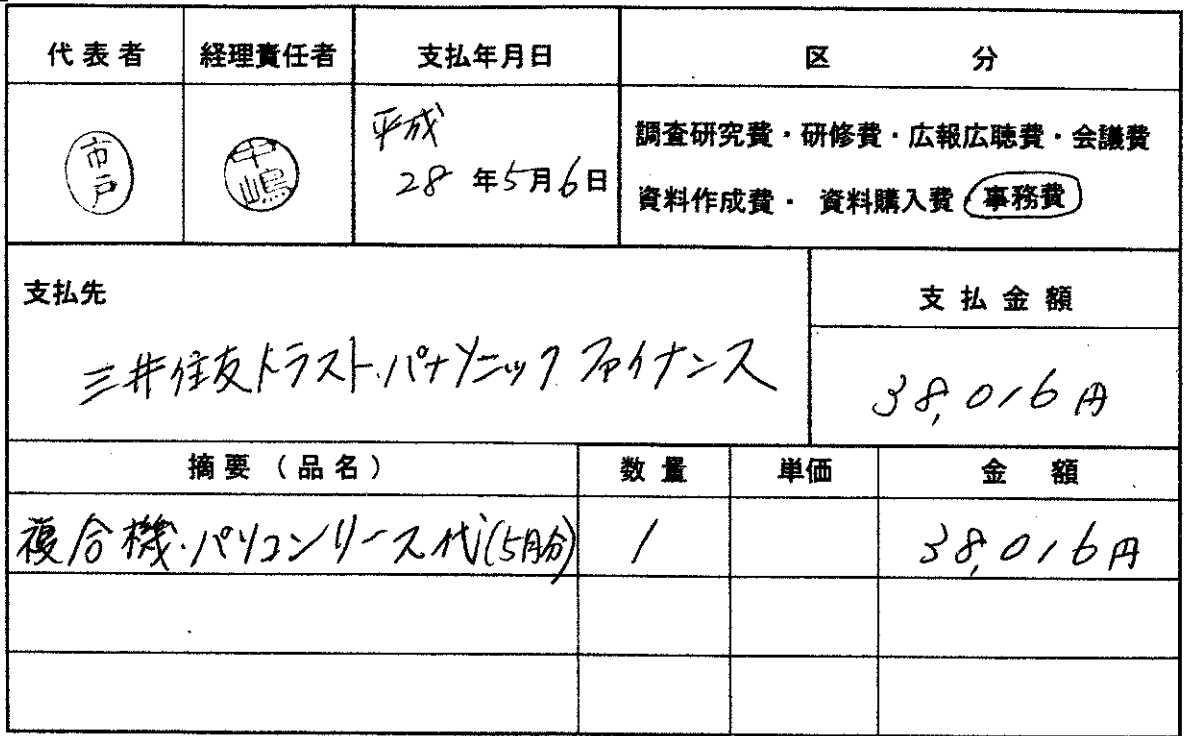 代表者 経理責任者 支払年月日 区 分
市戸 中嶋 平成
28 年5月6日
調査研究費・研修費・広報広聴費・会議費
資料作成費・ 資料購入費・事務費
支払先 支払金額
三井住友トラスト・パナソニックファイナンス
38,016円
摘要(品名) 数量 単価 金 額
複合機・パソコンリース代(5月分) 1 38,016円